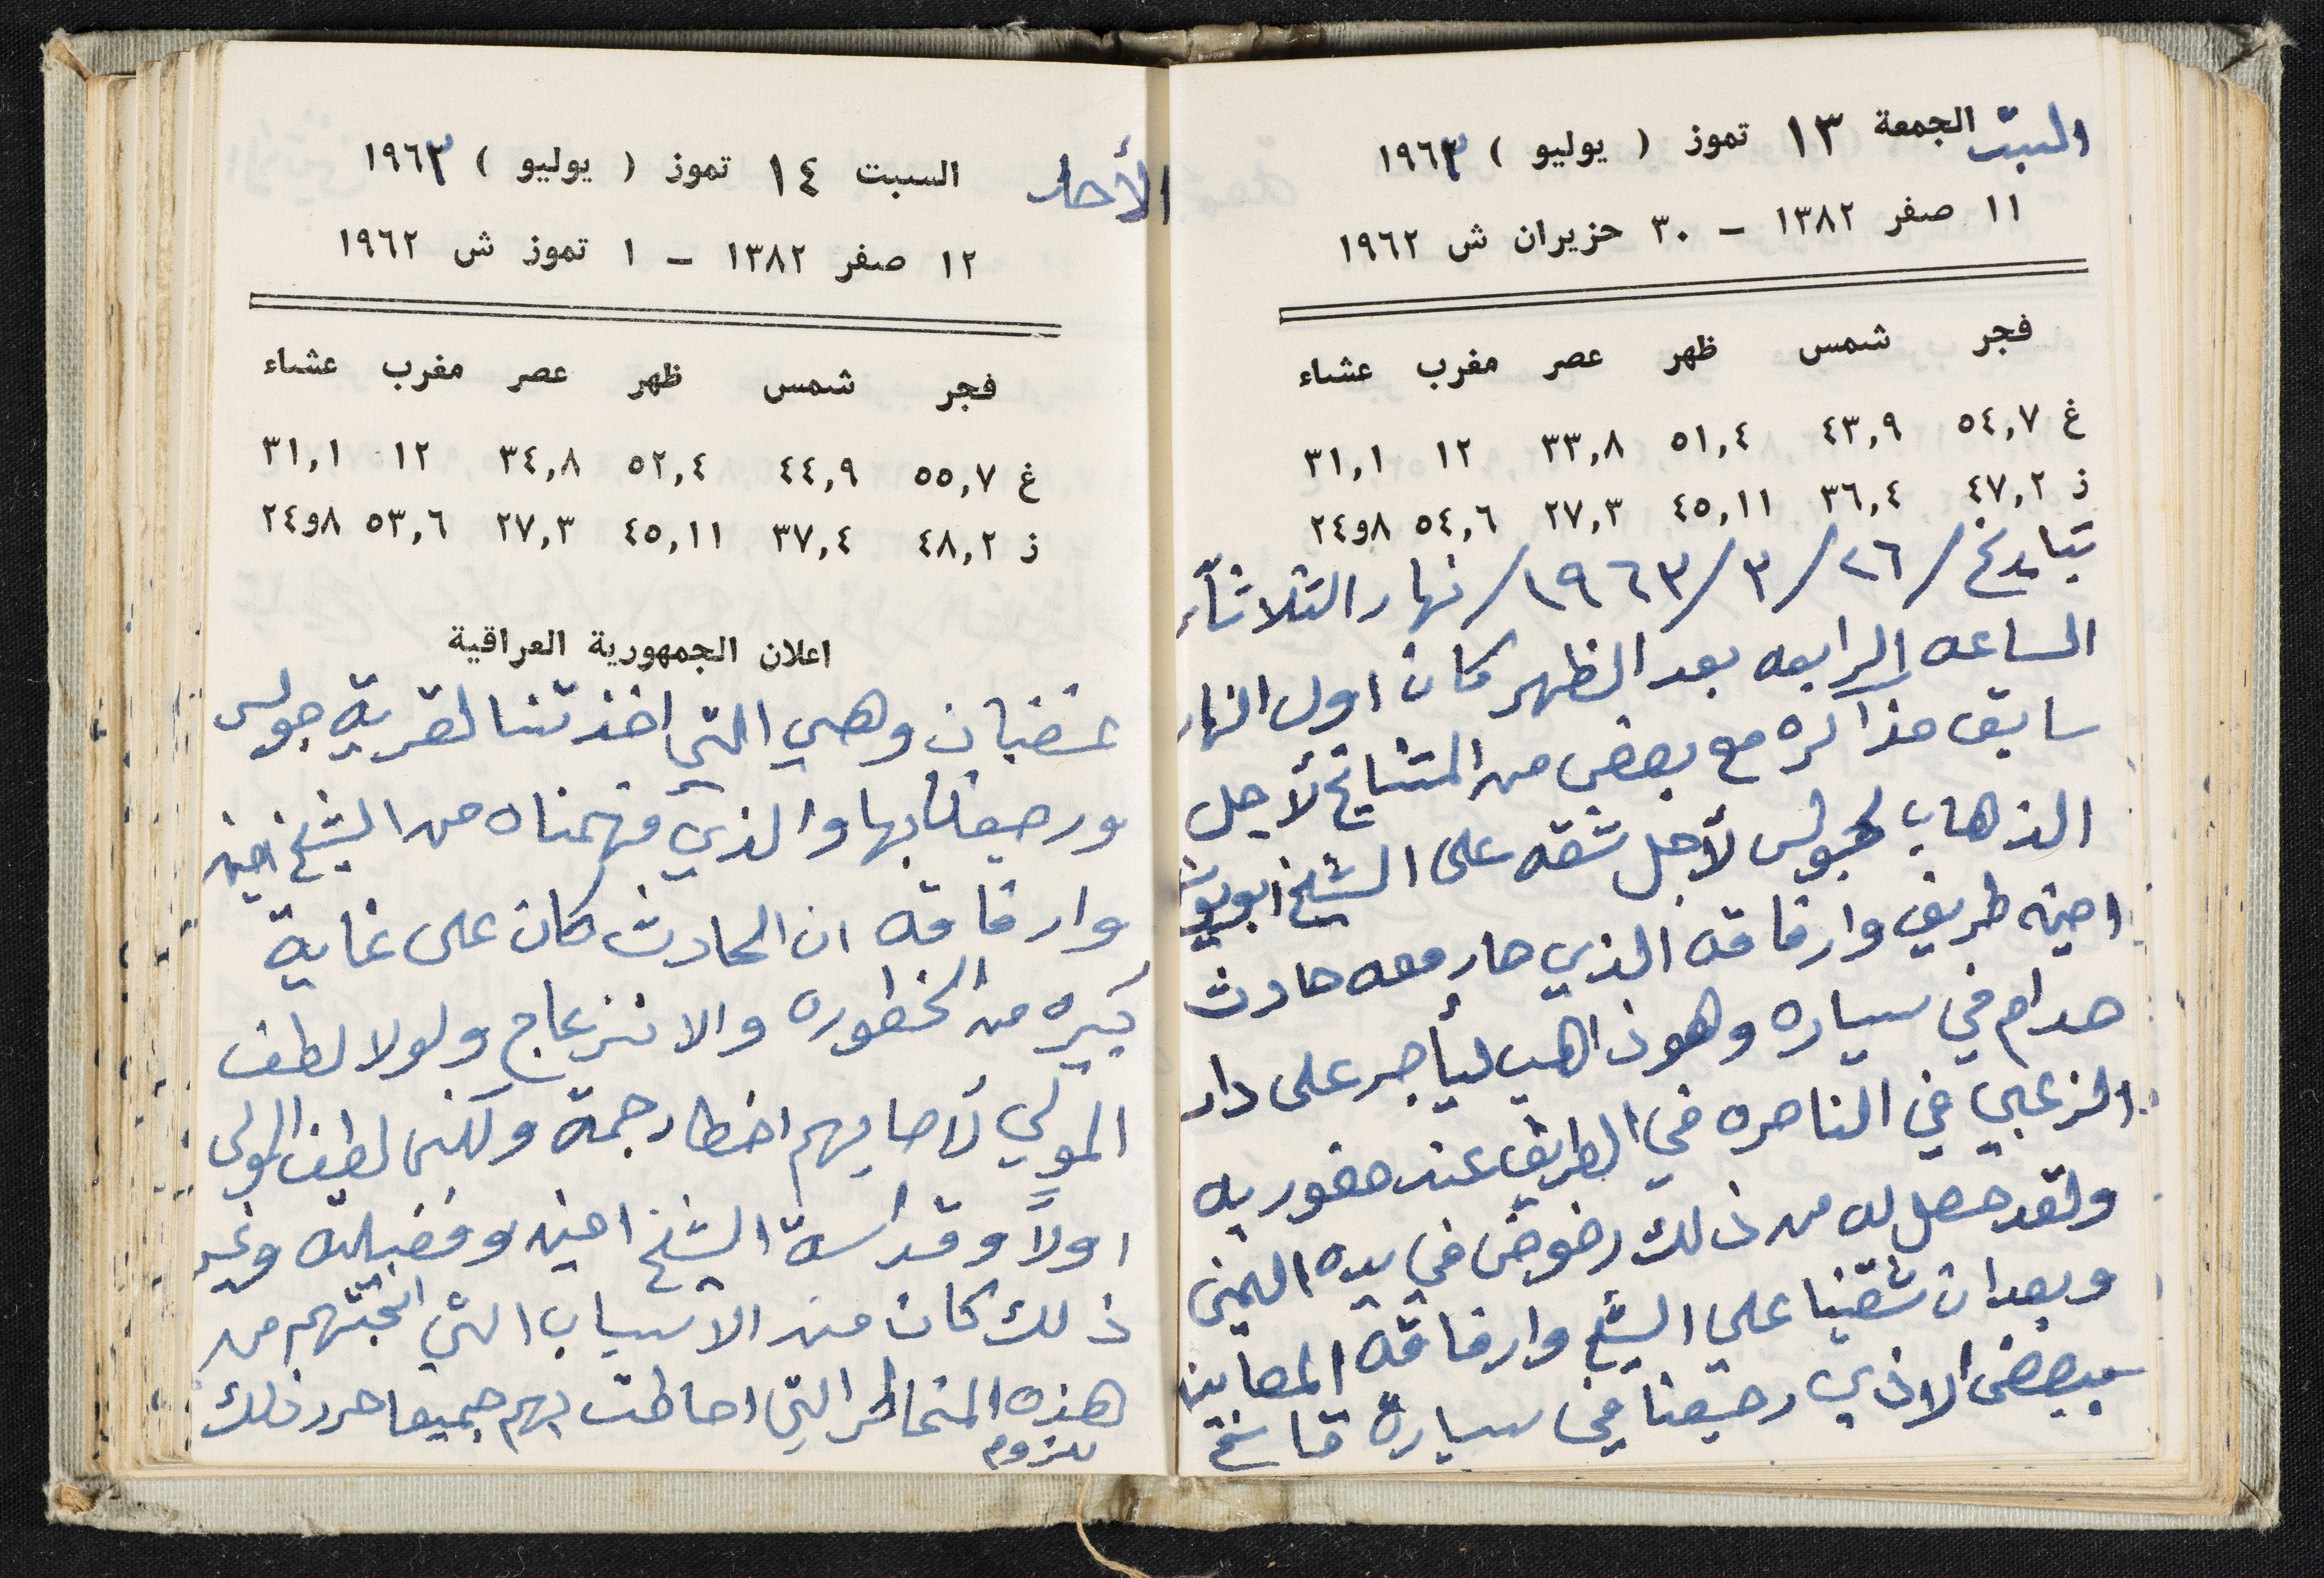 السبت الجمعة ١٣ تموز ( يوليو ) ١٩٦٣
١١ صفر ١٣٨٢ – ٣٠ حزيران ش ١٩٦٢
فجر شمس ظهر عصر مغرب عشاء
غ ٥٤,٧ ٤٣,٩ ٥١,٤ ٣٣,٨ ١٢ ٣١,١
ز ٤٧,٢ ٣٦,٤ ٤٥,١١ ٢٧,٣ ٥٤,٦ ٨و٢٤
بتاريخ /٢٦/٣/١٩٦٣/ نهار الثلاثاء
الساعه الرابعه بعد الظهر كان اول النهار
سابق مذاكره مع بعض من المشايخ لأجل
الذهاب لجولس لأجل شقه على الشيخ ابو يوسف
امين طريف وارفاقه الذي صار معه حادث
صدام في سياره وهو ذاهب ليأجر على دار
الزعبي في الناصره في الطريق عند صفوريه
ولقد حصل له من ذلك رضوض في يده اليمنى
وبعد ان شقينا على الشيخ وارفاقه المصابين
ببعض الاذى رجعنا في سيارة قاسم
الأحد السبت ١٤ تموز ( يوليو ) ١٩٦٣
١٢ صفر ١٣٨٢ – ١ تموز ش ١٩٦٢
فجر شمس ظهر عصر مغرب عشاء
غ ٥٥,٧ ٤٤,٩ ٥٢,٤ ٣٤,٨ ١٢ ٣١,١
ز ٤٨,٢ ٣٧,٤ ٤٥,١١ ٢٧,٣ ٥٣,٦ ٨و٢٤
اعلان الجمهورية العراقية
غضبان وهي التي اخذتنا لقرية جولس
ورجعنا بها والذي فهمناه من الشيخ امين
وارفاقه ان الحادث كان على غاية
كبيره من الخطوره والانزعاج ولولا لطف
المولي لأصابهم اخطار جمة ولكن لطف المولى
اولاً وقداسة الشيخ امين وفضيلته وغير
ذلك كان من الاسباب التي انجتهم من
هذه المخاطر التي احاطت بهم جميعا حرر ذلك
للزوم